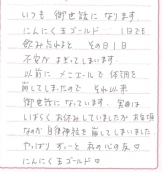 いつも 御世話になります。
にんにく玉ゴールド 1日でも
飲み忘れると その日1日
不安がまとってしまいます。
以前に メニエールで 体調を
崩してしまったので それ以来
御世話になっています。実は
しばらく お休みしていましたが
なのが 自律神経を崩してしまいました
やっぱり ずーっと 私の心の友♡
にんにく玉ゴールド♡